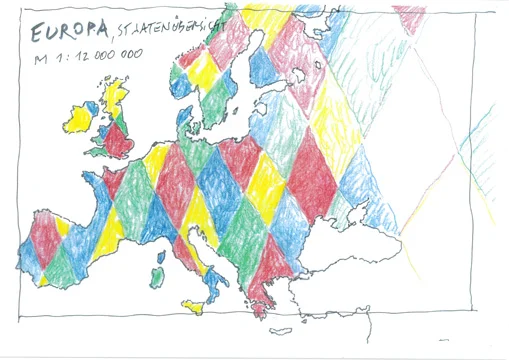 EUROPA, STAATENÜBERSICHT
M 1:12 000 000